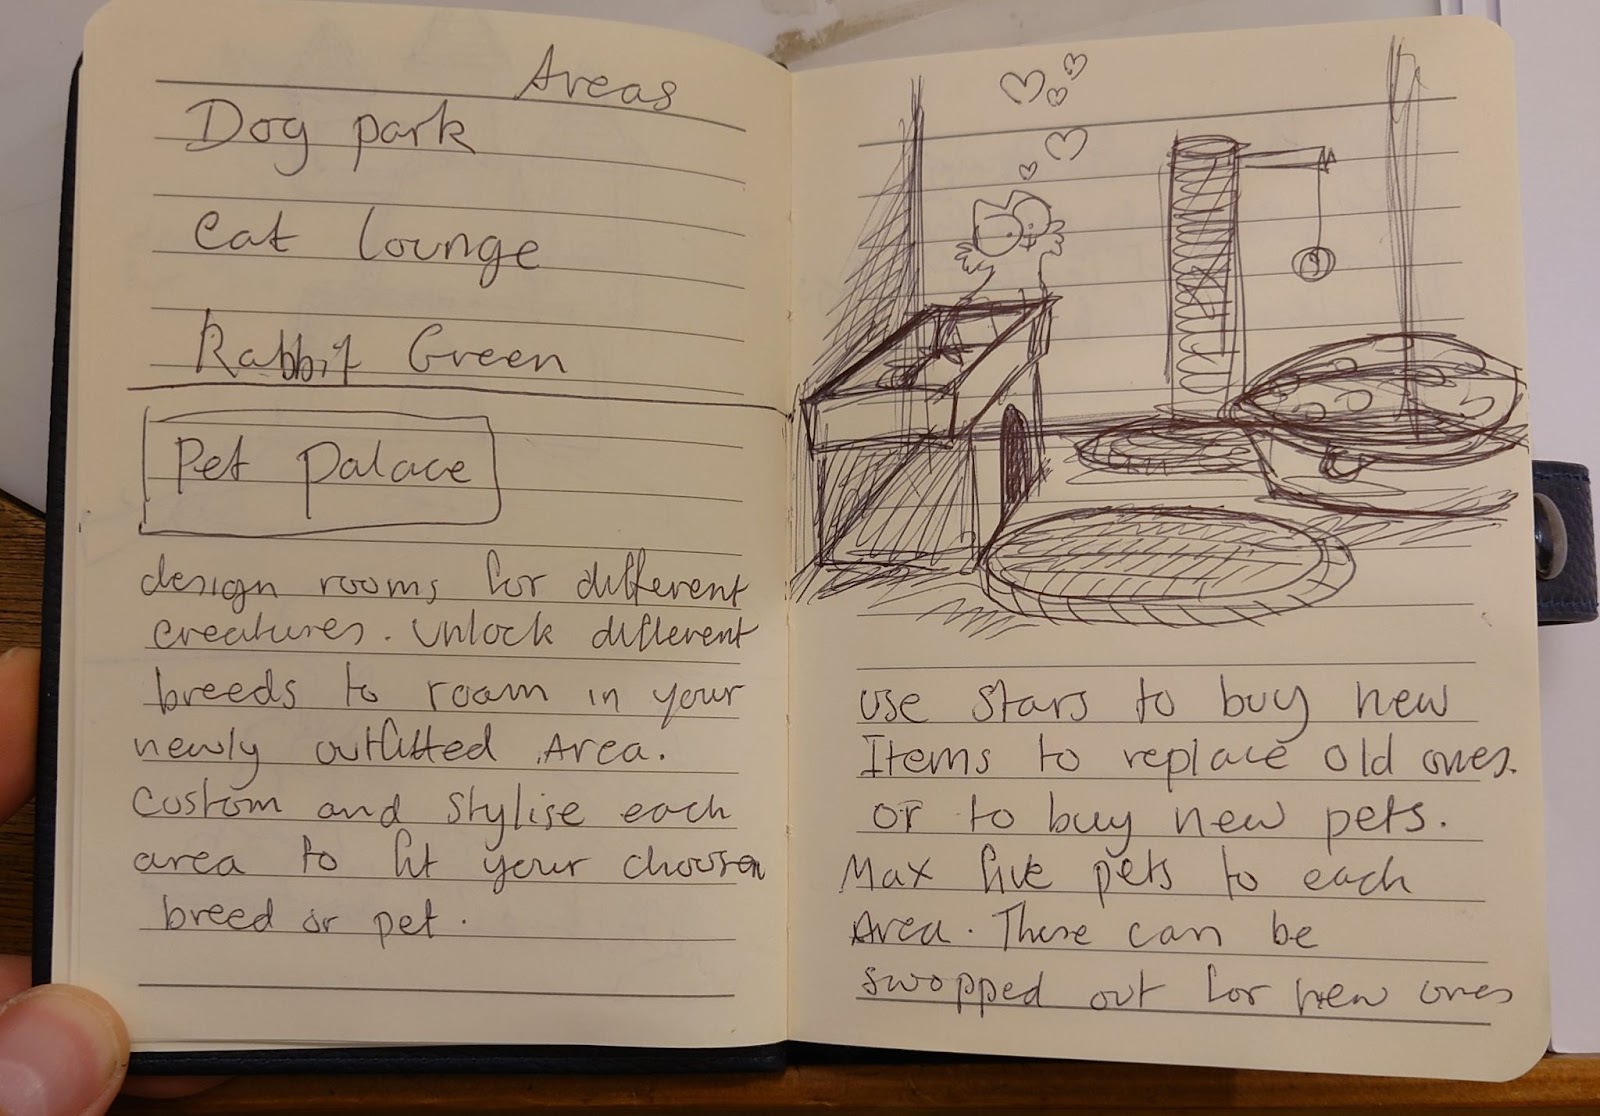 Areas
Dog park
Cat lounge
Rabbit Green
Pet Palace
design rooms for different
creatures. Unlock different
breeds to roam in your
newly outfitted Area.
Custom and Stylise each
area to fit your choosen
breed or pet.
use stars to buy new
Items to replace old ones.
or to buy new pets.
Max five pets to each
Area. These can be
swopped out for new ones